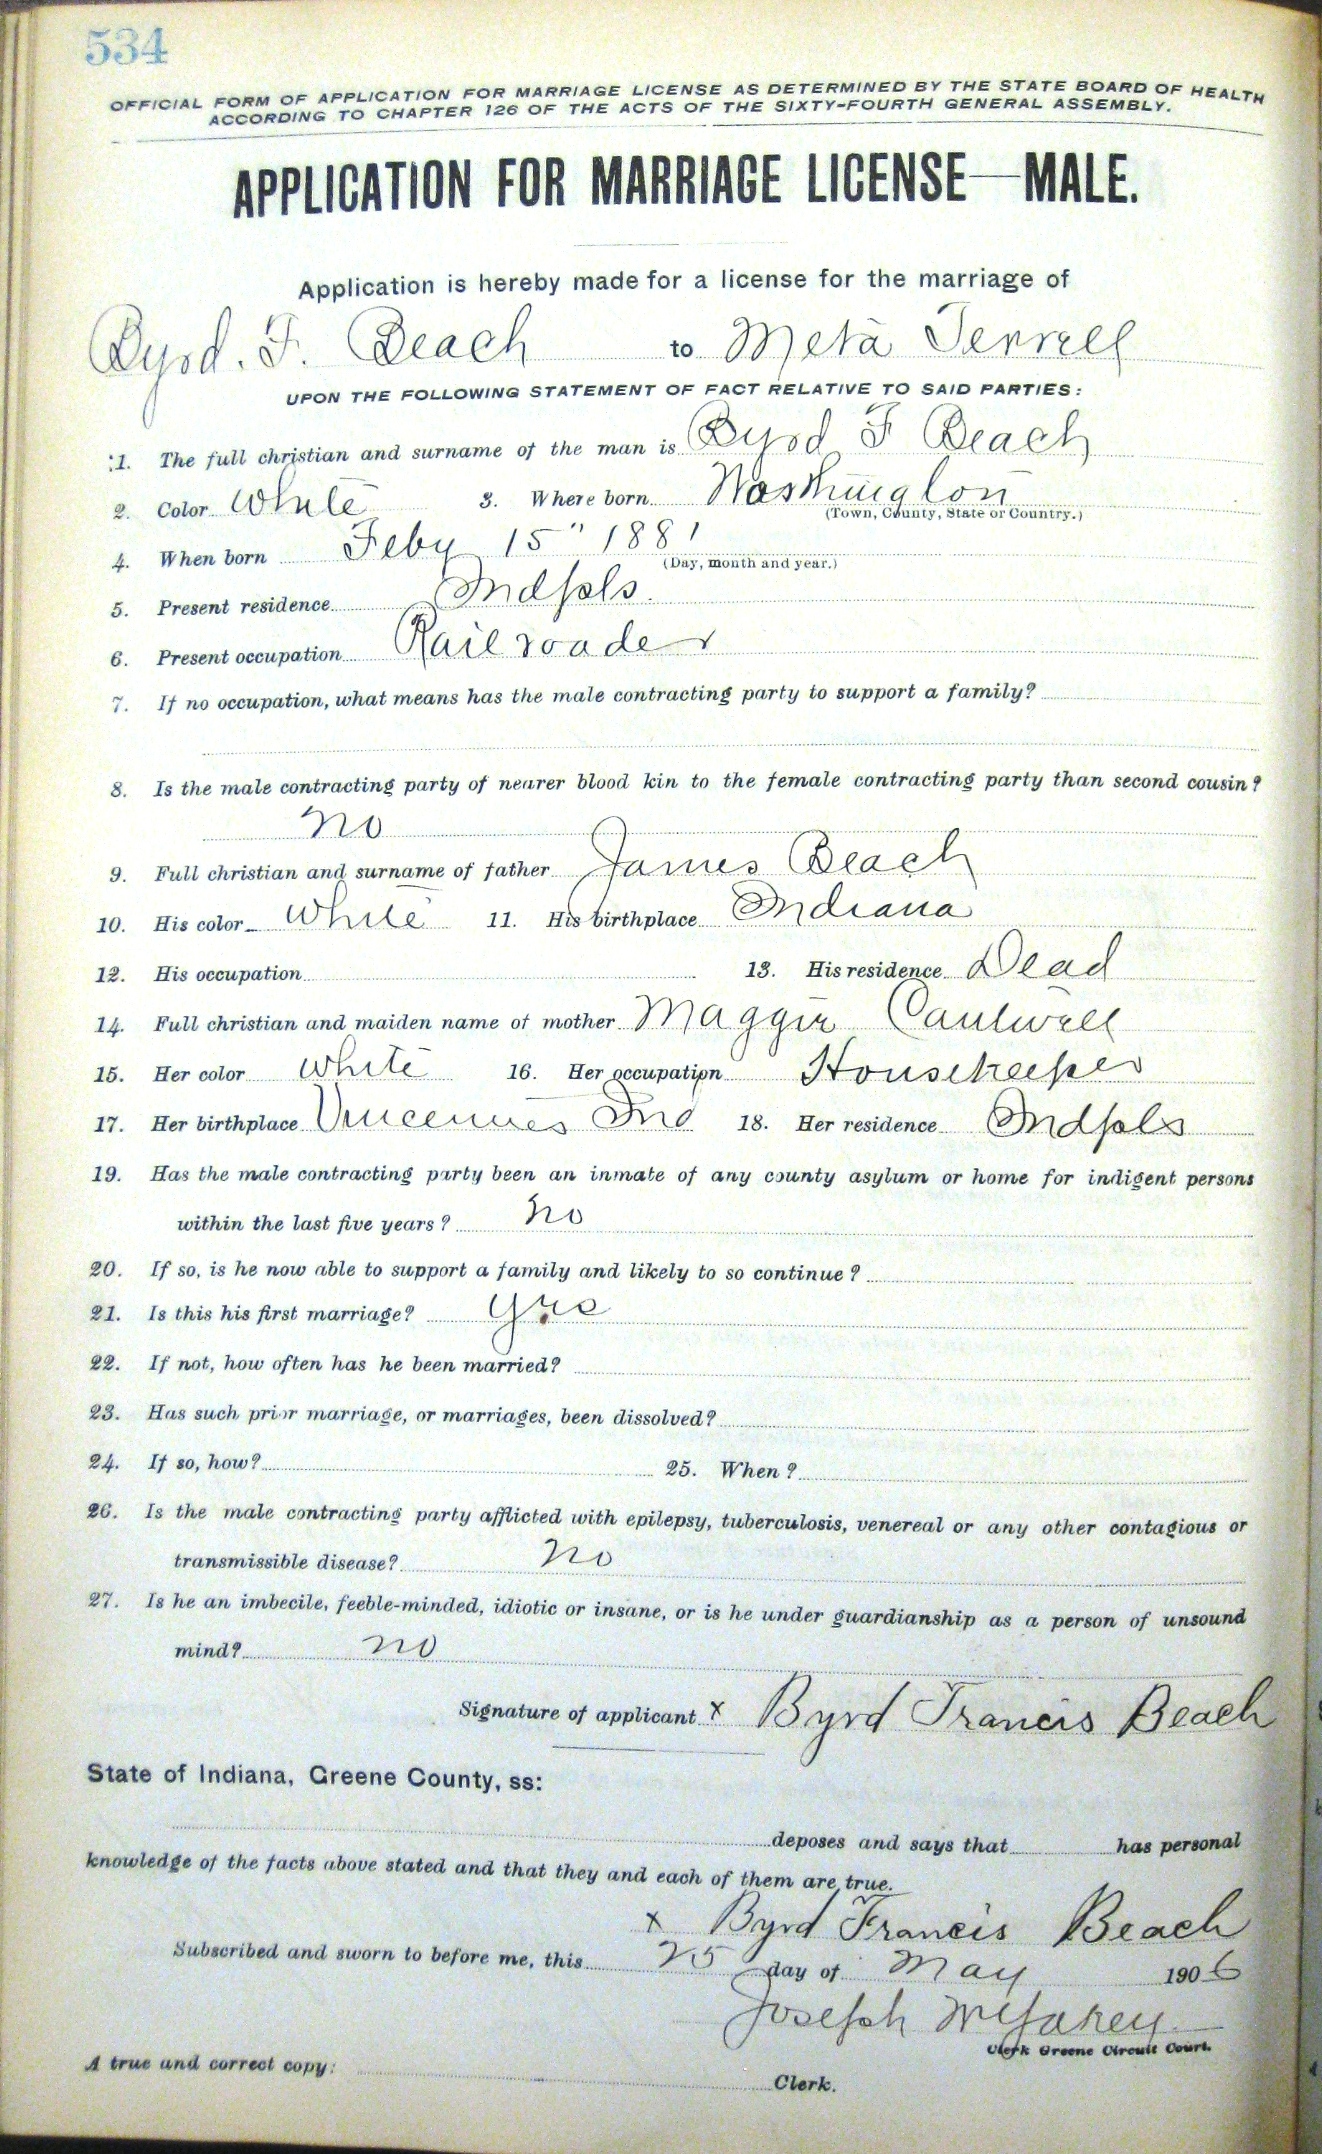 534
OFFICIAL FORM OF APPLICATION FOR MARRIAGE LICENSE AS DETERMINED BY THE STATE BOARD OF HEALTH
ACCORDING TO CHAPTER 126 OF THE ACTS OF THE SIXTY-FOURTH GENERAL ASSEMBLY.
APPLICATION FOR MARRIAGE LICENSE—MALE.
Application is hereby made for a license for the marriage of
Byrd. F. Beach to Meta Terrell
UPON THE FOLLOWING STATEMENT OF FACT RELATIVE TO SAID PARTIES:
1. The full christian and surname of the man is Byrd F Beach
2. Color White 3. Where born Washington
(Town, County, State or Country.)
4. When born Feby 15" 1881
(Day, month and year.)
5. Present residence Indpls.
6. Present occupation Railroader
7. If no occupation, what means has the male contracting party to support a family?
8. Is the male contracting party of nearer blood kin to the female contracting party than second cousin?
no
9. Full christian and surname of father James Beach
10. His color White 11. His birthplace Indiana
12. His occupation 13. His residence Dead
14. Full christian and maiden name of mother Maggie Cantwell
15. Her color White 16. Her occupation Housekeeper
17. Her birthplace Vincennes Ind 18. Her residence Indpls
19. Has the male contracting party been an inmate of any county asylum or home for indigent persons
within the last five years? no
20. If so, is he now able to support a family and likely to so continue?
21. Is this his first marriage? yes
22. If not, how often has he been married?
23. Has such prior marriage, or marriages, been dissolved?
24. If so, how? 25. When?
26. Is the male contracting party afflicted with epilepsy, tuberculosis, venereal or any other contagious or
transmissible disease? no
27. Is he an imbecile, feeble-minded, idiotic or insane, or is he under guardianship as a person of unsound
mind? no
Signature of applicant x Byrd Francis Beach
State of Indiana, Greene County, ss:
deposes and says that has personal
knowledge of the facts above stated and that they and each of them are true.
x Byrd Francis Beach
Subscribed and sworn to before me, this 25 day of May 1906
Joseph
Clerk Greene Circuit Court.
A true and correct copy: Clerk.